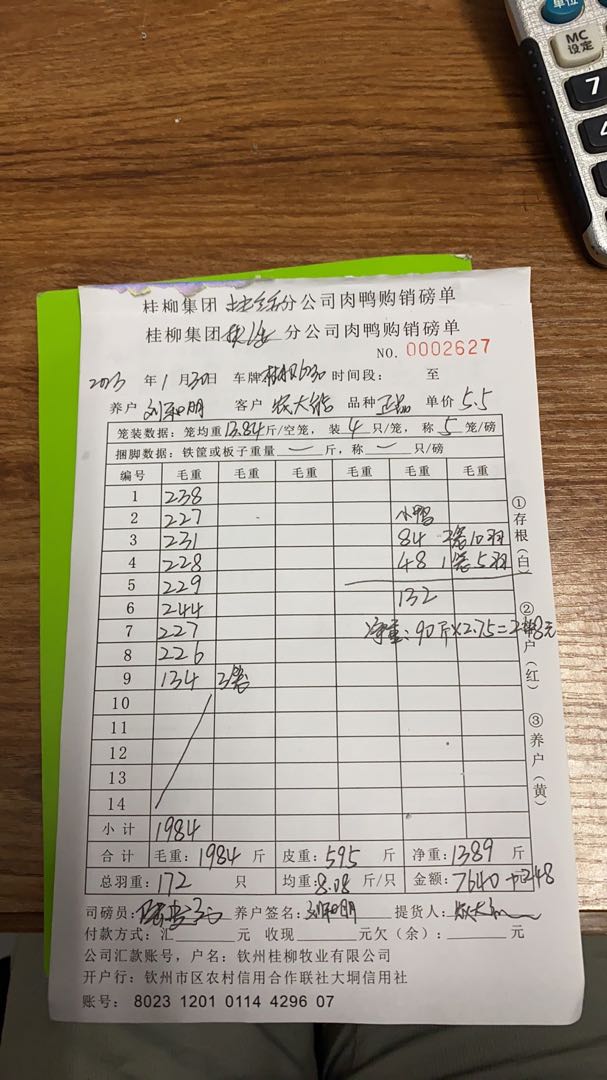 单位
MC
设定
7
4
桂柳集团 分公司肉鸭购销磅单
桂柳集团 分公司肉鸭购销磅单
NO. 0002627
2023 年 1 月 30 日 车牌 时间段: 至
养户 刘和明 客户 农大 品种 正品 单价 5.5
笼装数据: 笼均重 13.84 斤/空笼, 装 4 只/笼, 称 5 笼/磅
捆脚数据: 铁筐或板子重量 一 斤, 称 一 只/磅
编号 毛重 毛重 毛重 毛重 毛重 毛重
1 238
2 227 小鸭
3 231 84 2笼10羽
4 228 48 1笼5羽
5 229
6 244 132
7 227 净重: 90斤×2.75=
8 226
9 134 3笼
10
11
12
13
14
小计 1984
合计 毛重: 1984 斤 皮重: 595 斤 净重: 1389 斤
总羽重: 172 只 均重: 8.08 斤/只 金额: 7640
司磅员: 养户签名: 刘和明 提货人: 农大
付款方式: 汇 元 收现 元欠(余): 元
公司汇款账号, 户名: 钦州桂柳牧业有限公司
开户行: 钦州市区农村信用合作联社大垌信用社
账号: 8023 1201 0114 4296 07
①存根(白)
②客户(红)
③养户(黄)